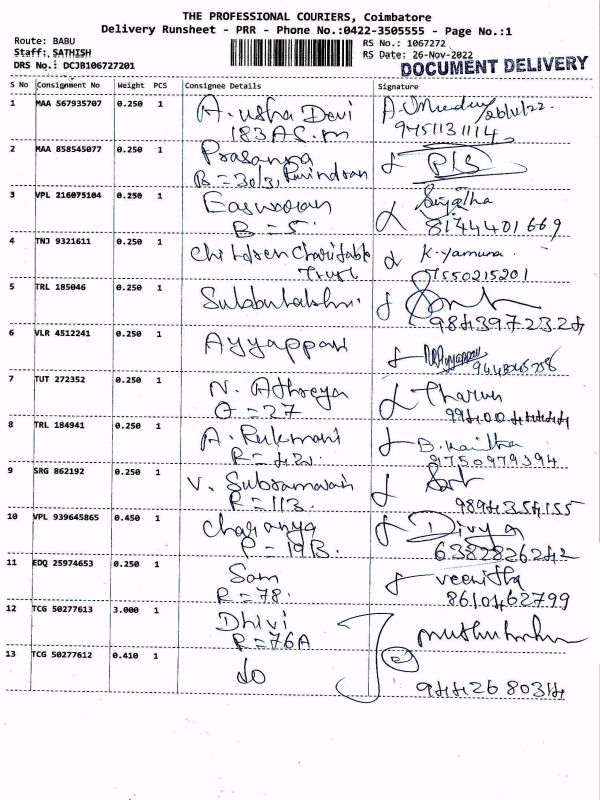 THE PROFESSIONAL COURIERS, Coimbatore
Delivery Runsheet - PRR - Phone No.:0422-3505555 - Page No.:1
Route: BABU RS No.: 1067272
Staff: SATHISH RS Date: 26-Nov-2022
DRS No.: DCJB106727201 DOCUMENT DELIVERY
S No Consignment No Weight PCS Consignee Details Signature
1 MAA 567935707 0.250 1 A. usha Devi
183 A S.m 9751131114
2 MAA 858545077 0.250 1 Prasanya
B = 30/3,
3 VPL 216075104 0.250 1 Easwaran Sujatha
B = 5. 8144401669
4 TNJ 9321611 0.250 1 Children Charitable K. Yamuna
Trust 7550215201
5 TRL 185046 0.250 1 Subbulakshmi.
9843972324
6 VLR 4512241 0.250 1 Ayyappan
7 TUT 272352 0.250 1 N. Athreya Tharun
O = 27
8 TRL 184941 0.250 1 A. Rukmani
R = 42. 9750979394
9 SRG 862192 0.250 1 V. Subramaniam
R = 113. 9894354155
10 VPL 939645865 0.450 1 Charanya Divya
P = 19B. 6382826242
11 EDQ 25974653 0.250 1 Sam veenitha
R = 78. 8610462799
12 TCG 50277613 3.000 1 Dhivi
R = 76A
13 TCG 50277612 0.410 1 do
9442680314